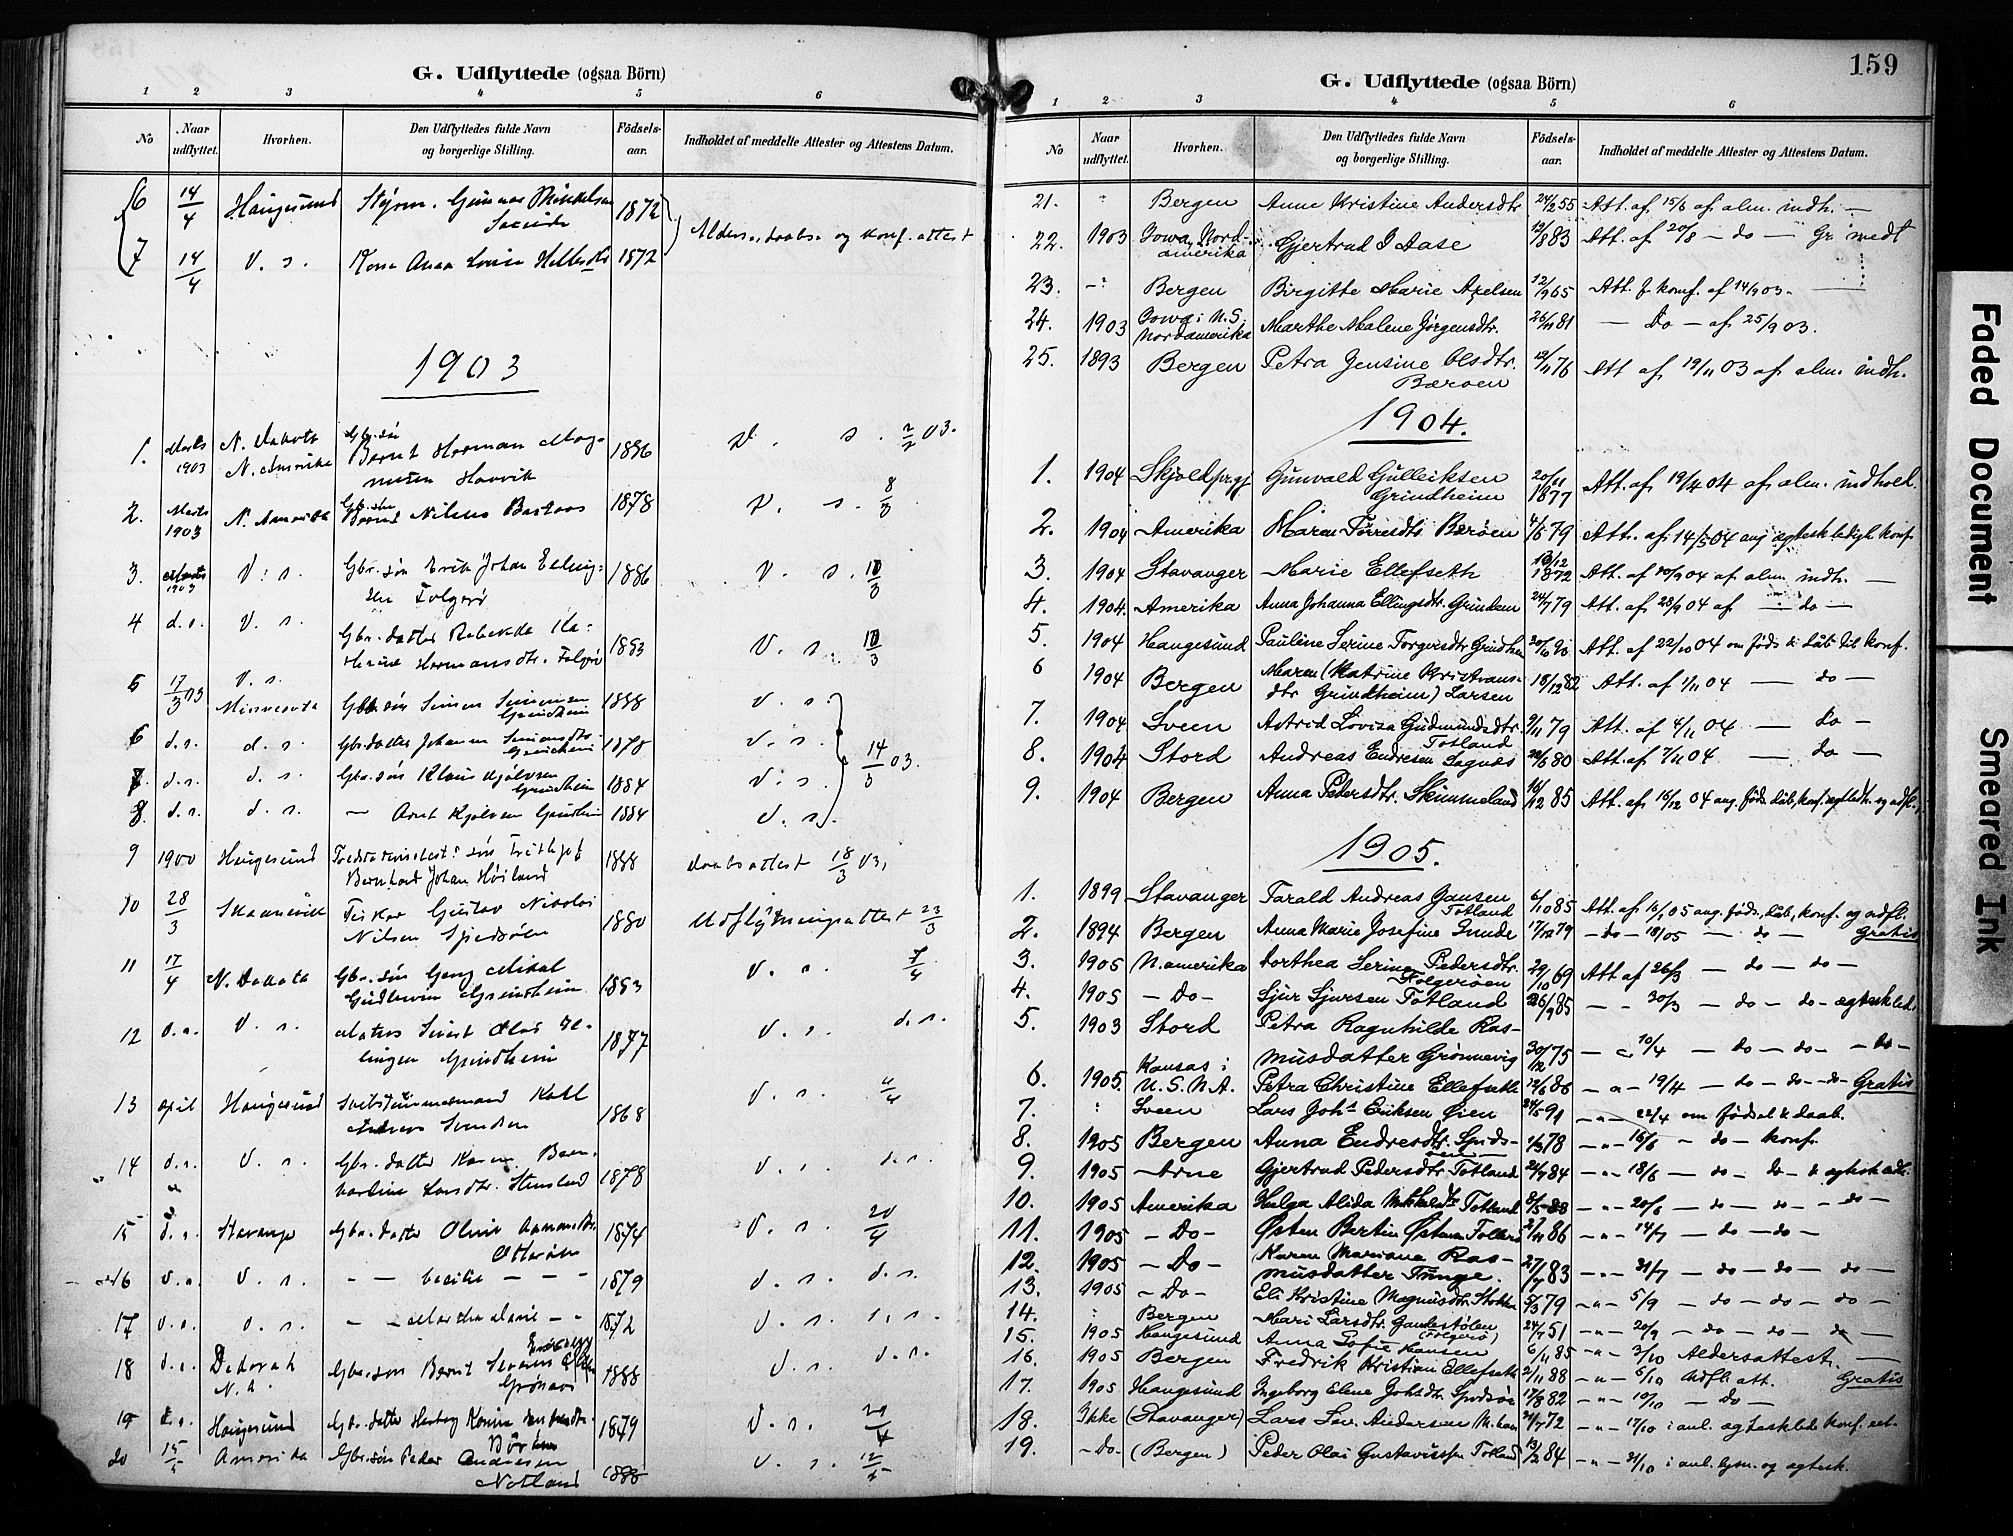 G. Udflyttede (ogsaa Börn)
1 2 3 4 5 6
No
Naar udflyttet.
Hvorhen.
Den Udflyttedes fulde Navn og borgerlige Stilling.
Födsels-aar.
Indholdet af meddelte Attester og Attestens Datum.
6 14/4 Haugesund Styrm. Gunnar Mikkelsen 1872
7 14/4 d. s. Kone Anna Lovise 1872
Alders, daabs og konf. attest
1903
1. Marts 1903 N. Dakota N. Amerika Gbr.søn Bernt Herman Mag- 1886 d. s. 2/2 03.
nusen Hovvik
2. Marts 1903 N. Amerika Gbr.søn Bernt Nilsen Bastaas 1878 d. s. 8/3
3. Marts 1903 d. s. Gbr. søn Erik Johan Elling- 1886 d. s. 10/3
sen Folgerø
4 d. s. d. s. Gbr. datter Rebekka Ka- 1883 d. s. 10/3
thrine Hermansdtr. Folgerø
5 17/3 03 d. s. Minnesota Gbr. søn Simon Simonsen Grindheim 1888 d. s.
6 d. s. d. s. Gbr. datter Johanna Simonsdtr. Grindheim 1878 d. s. 14/3 03.
7. d. s. d. s. Gbr. søn Klaus Kjølvsen Grindheim 1884 d. s.
8. d. s. d. s. — Arnt Kjølvsen Grindheim 1884 d. s.
9 1900 Haugesund søn Frithjof 1888 daabsattest 18/3 03,
Bernhard Johan Høiland
10 28/3 Skaanevik Fisker Gustav Nikolai 1880 Udflytningsattest 23/3
Nilsen Spidsøen
11 17/4 N. Dakota Gbr. søn Georg Mikal 1883 d. s. 7/4
Gudleivsen Grindheim
12 d. s. d. s. Matros Sivert Olai El- 1877 d. s. d. s.
lingsen Grindheim
13 April Haugesund Karl 1868 d. s.
Andreas Svendsen
14 d. s. d. s. Gbr. datter Karen Bern- 1878 d. s. d. s.
hardine Larsdtr. Stensland
15 d. s. Stavanger Gbr. datter Oline 1874 d. s. 20/4
Otterøen
16 d. s. d. s. — — Cecilie — — 1879 d. s. d. s.
17 d. s. d. s. — Martha Marie — 1872 d. s. d. s.
18 d. s. Decorah N. A. Gbr. søn Bernt Severin 1888 d. s. d. s.
Grønevik
19 d. s. Haugesund Gbr. datter 1879 d. s. 29/4
20 15/5 Amerika Gbr. søn Peder Andresen 1888 d. s. 12/5
Notland
159
G. Udflyttede (ogsaa Börn)
1 2 3 4 5 6
No
Naar udflyttet.
Hvorhen.
Den Udflyttedes fulde Navn og borgerlige Stilling.
Födsels-aar.
Indholdet af meddelte Attester og Attestens Datum.
21. " Bergen Anne Kristine Andersdtr 24/2 55 Att. af 15/6 af alm. indh. —
22. 1903 Iowa, Nord-amerika Gjertrud J Aase 19/8 83 Att. af 20/8 — do —
23. — " Bergen Birgitte Marie Axelsen 12/9 65 Att. f. konf. af 14/9 03. —
24. 1903 Iowa i U.S. Nordamerika Marthe Malene Jørgensdtr. 26/11 81 — Do — af 25/9 03.
25. 1893 Bergen Petra Jensine Olsdtr. 12/11 76 Att af 19/11 03 af alm. indh.
Bærøen
1904.
1. 1904 Skjoldprgj Gunvald Gulleiksen 20/11 1877 Att. af 19/4 04 af alm. indhold.
Grindheim
2. 1904 Amerika Maren Torresdtr Bærøen 4/6 79 Att. af 14/5 04 ang. ægteskledigh. konf.
3. 1904 Stavanger Marie Ellefseth 10/12 1872 Att. af 10/9 04 af alm. indh. —
4. 1904. Amerika Anna Johanna Ellingsdtr. Grindem 24/7 79 Att. af 28/9 04 af — do —
5. 1904 Haugesund Pauline Serine Torgersdtr Grindhem 20/10 90 Att. af 22/10 04 om føds. & dåb til konf.
6 1904 Bergen Maren (Katrine Kristians- 18/12 82 Att. af 1/11 04 — do —
dtr Grindheim) Larsen
7. 1904 Sveen Astrid Loviza Gudmundsdtr 9/11 79 Att. af 4/11 04 — do —
Totland
8. 1904 Stord Andreas Endresen Sagnæs 29/6 80 Att. af 7/11 04 — do —
9. 1904 Bergen Anna Pedersdtr. Skimmeland 16/12 85 Att. af 15/12 04 ang. føds. dåb, konf. ægtledh. og udfl.
1905.
1. 1899 Stavanger Tarald Andreas Jansen 6/10 85 Att. af 16/1 05 ang. føds., dåb, konf. og udfl.
Totland
2. 1894 Bergen Anna Marie Josefine Sunde 17/12 79 — do — 18/1 05 — do — Gratis
3. 1905 N. amerika Dorthea Serine Pedersdtr. 29/10 69 Att af 26/3 — do — do —
Folgerøen
4. 1905 — Do — Sjur Sjursen Totland 26/9 85 — — 30/3 — do — do — ægteskled.
5. 1903 Stord Petra Ragnhilde Ras-
musdatter Grønnevig 30/12 75 — " 10/4 — do — do — — do —
6. 1905. Kansas i U.S.N.A. Petra Christine Ellefseth 19/6 86 — " — 19/4 — do — do — do Gratis
7. " Sveen Lars Johs Eriksen Øien 24/5 91 — " — 22/4 om fødsel & daab.
8. 1905 Bergen Anna Endresdtr. Spids-øen 1/3 78 — " — 16/6 — do — konf.
9. 1905 — Arne Gjertrud Pedersdtr Totland 21/9 84 — " — 18/6 — do — do — & ægtesk. adk.
10. 1905 Amerika Helga Alida Mikkelsdtr Totland 8/5 88 — " — 20/6 — do — do — — do —
11. 1905 — Do — Østen Bertin Østensen Folgerø 21/11 86 — " — 14/7 — do — do —
12. 1905 — Do — Karen Mariane Ras-
musdatter Tunge. 27/7 83 — " — 31/7 — do — do — do —
13. 1905 — Do — Eli Kristine Magnusdtr Stokka 5/3 79 — " — 5/9 — do — do — do —
14. " Bergen Mari Larsdtr. Gaudestølen (Folgerø) 24/7 51 — " — 20/9 — do — do — do —
15. 1905 Haugesund Anna Sofie Hansen 6/11 85 — " — 3/10 Aldersattest. —
16. 1905 Bergen Fredrik Kristian Ellefseth 2/11 88 — " — 5/10 Udfl. att. Gratis
17. 1905 Haugesund Ingeborg Elene Johsdtr Spidsøen 17/8 82 — " — 10/10 — Do —
18. Ikke (Stavanger) Lars Sev. Andersen 21/7 72 — " — 17/10 i anl. ægteskleds konf.
19. — Do — (Bergen) Peder Olai Gustavssen Totland 13/2 84 — " — 31/10 i anl. lysn. og ægtesk.
Faded Document
Smeared Ink